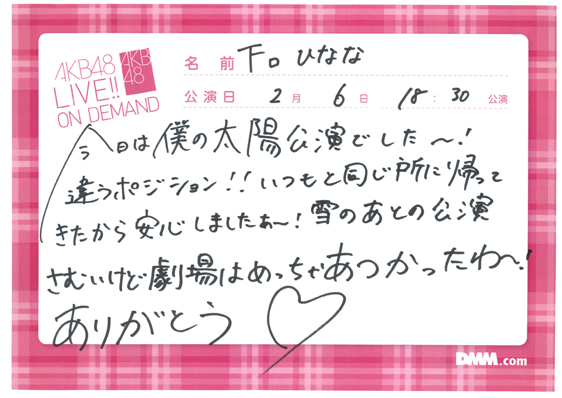 AKB48
LIVE!!
ON DEMAND
AKB
48
名前 下口ひなな
公演日 2月6日 18:30公演
今日は僕の太陽公演でした〜!
違うポジション!!いつもと同じ所に帰って
きたから安心しましたぁ〜!雪のあとの公演
さむいけど劇場はめっちゃあつかったわ〜!
ありがとう♡
DMM.com